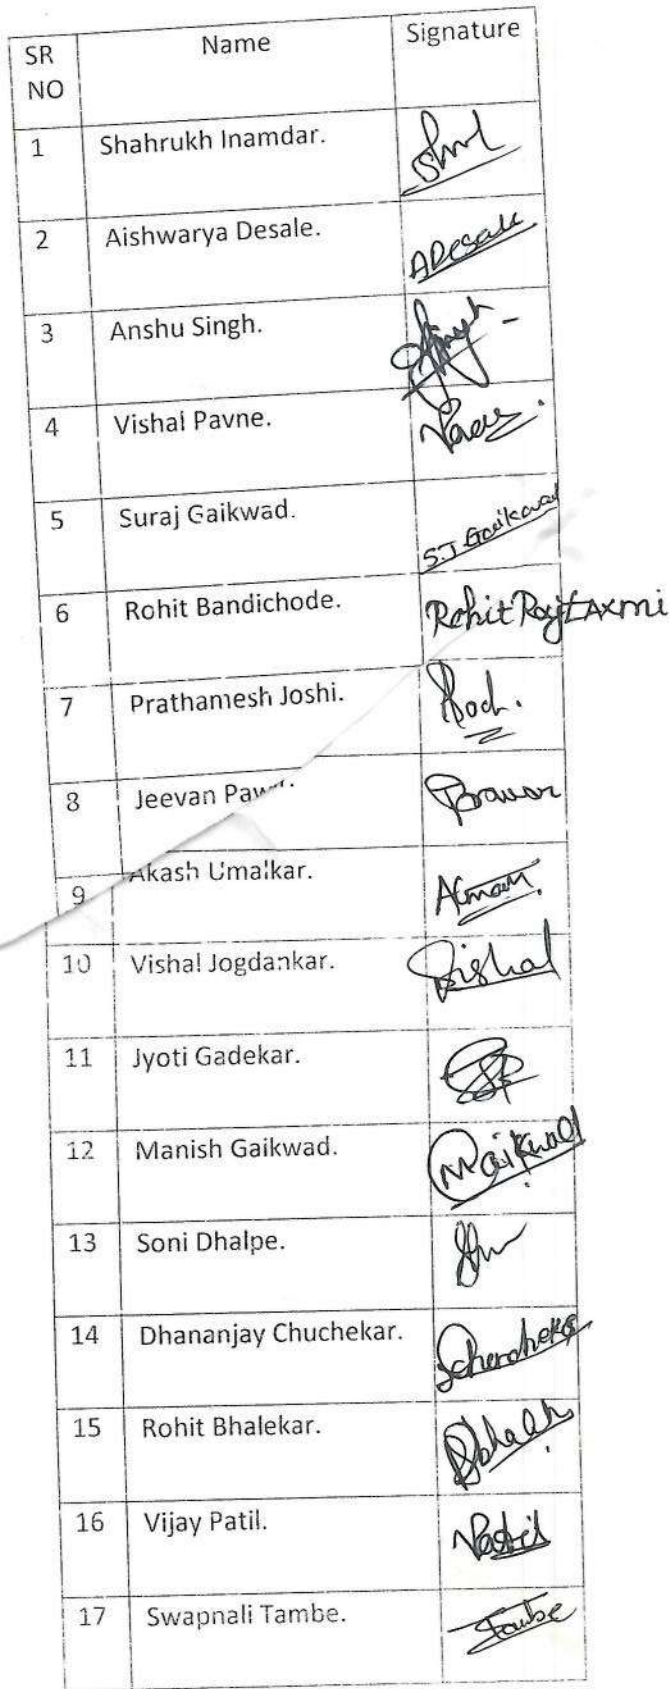 SR NO Name Signature
1 Shahrukh Inamdar.
2 Aishwarya Desale. ADesale
3 Anshu Singh.
4 Vishal Pavne.
5 Suraj Gaikwad. S.J. Gaikwad
6 Rohit Bandichode. Rohit RajLAxmi
7 Prathamesh Joshi.
8 Jeevan
9 Akash Umalkar.
10 Vishal Jogdankar. Vishal
11 Jyoti Gadekar.
12 Manish Gaikwad. MGaikwad
13 Soni Dhalpe.
14 Dhananjay Chuchekar.
15 Rohit Bhalekar.
16 Vijay Patil. VPatil
17 Swapnali Tambe. Tambe